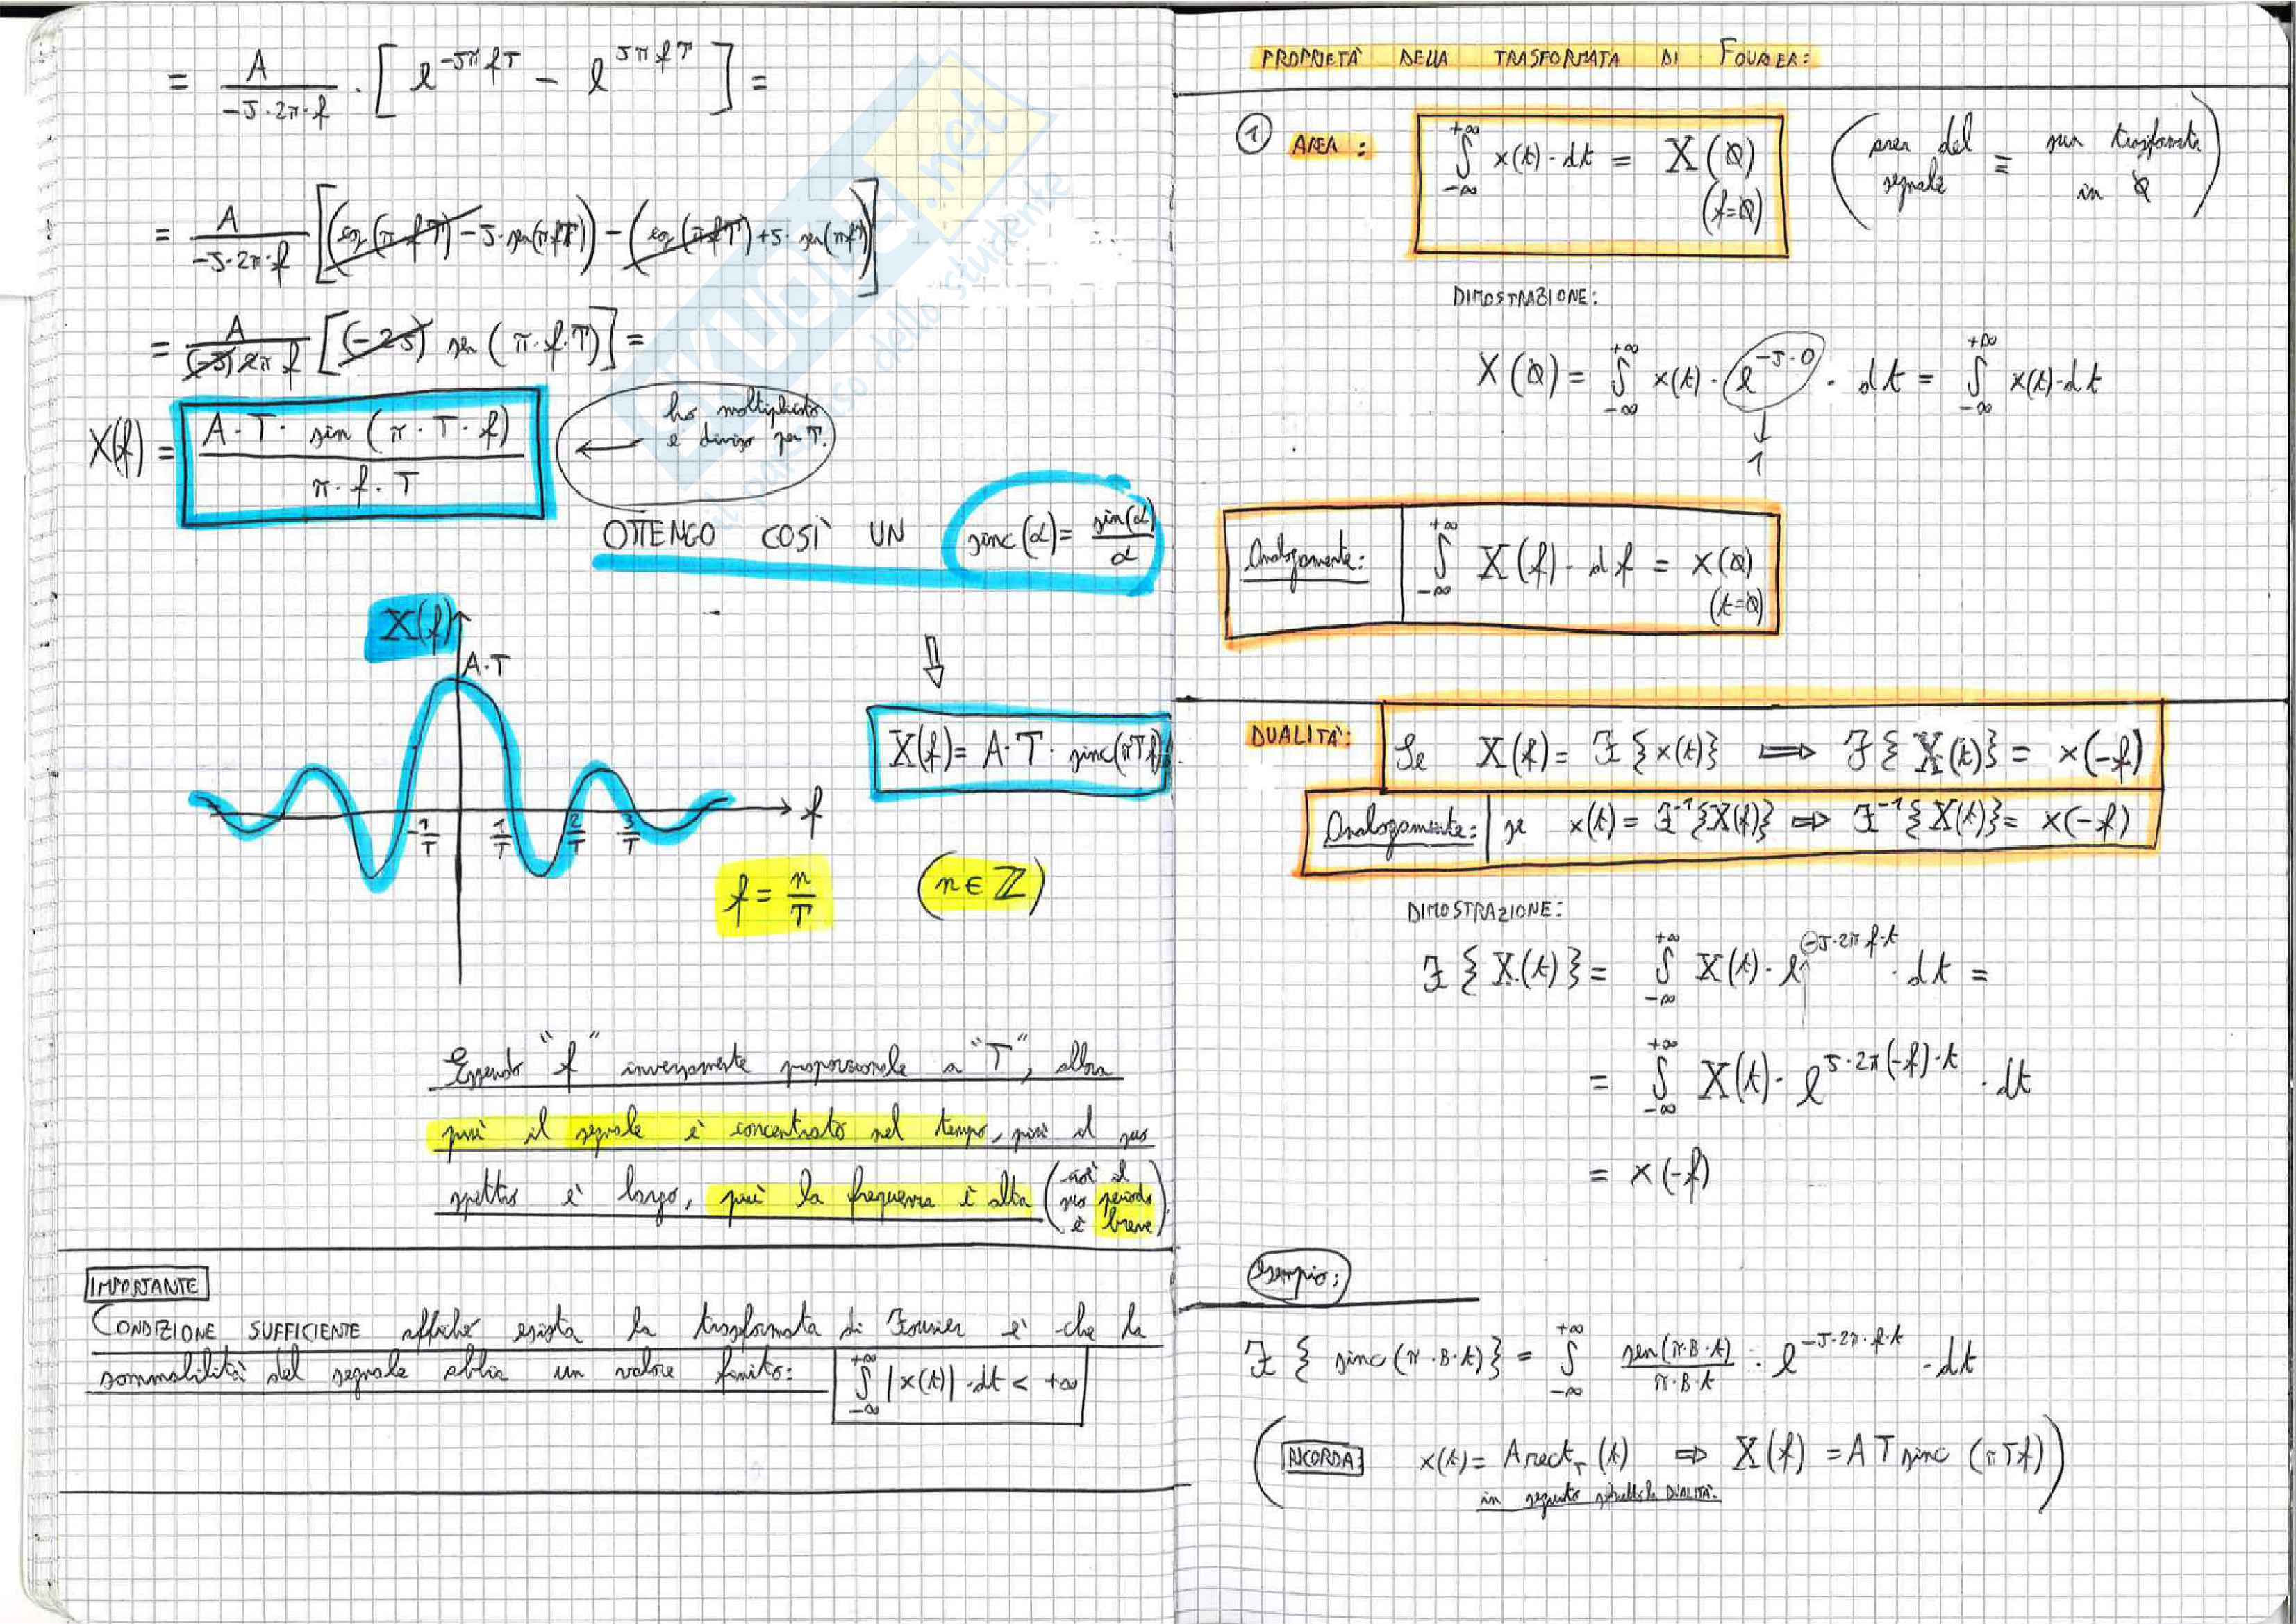 = A / (-J·2π·f) · [ e^(-Jπ f T) - e^(Jπ f T) ] =
= A / (-J·2π·f) [ (cos(π·f·T) - J·sen(π f T)) - (cos(π f T) + J·sen(π f T)) ]
= A / ((-J) 2π f) [ (-2J) sen (π·f·T) ] =
X(f) = A·T· sin (π·T·f) / (π·f·T)
ho moltiplicato
e diviso per T.
OTTENGO COSÌ UN sinc(α) = sin(α) / α
X(f)
A·T
⇓
X(f) = A·T· sinc(πTf)
-1/T 1/T 2/T 3/T f
f = n/T (n ∈ ℤ)
Essendo "f" inversamente proporzionale a "T", allora
più il segnale è concentrato nel tempo, più il suo
spettro è largo, più la frequenza è alta (così il suo periodo è breve)
IMPORTANTE
CONDIZIONE SUFFICIENTE affinché esista la trasformata di Fourier è che la
sommabilità del segnale abbia un valore finito: ∫_{-∞}^{+∞} |x(t)|·dt < +∞
PROPRIETÀ DELLA TRASFORMATA DI FOURIER:
① AREA: ∫_{-∞}^{+∞} x(t)·dt = X(0) (f=0) (area del segnale = sua trasformata in 0)
DIMOSTRAZIONE:
X(0) = ∫_{-∞}^{+∞} x(t)· e^(-J·0) · dt = ∫_{-∞}^{+∞} x(t)·dt
↓
1
Analogamente: ∫_{-∞}^{+∞} X(f)·df = x(0) (t=0)
DUALITÀ: Se X(f) = F{x(t)} ⟹ F{X(t)} = x(-f)
Analogamente: se x(t) = F⁻¹{X(f)} ⇒ F⁻¹{X(t)} = x(-f)
DIMOSTRAZIONE:
F{X(t)} = ∫_{-∞}^{+∞} X(t)· e^(-J·2π f·t) · dt =
= ∫_{-∞}^{+∞} X(t)· e^(J·2π(-f)·t) · dt
= x(-f)
esempio:
F{ sinc(π·B·t)} = ∫_{-∞}^{+∞} sen(π·B·t) / (π·B·t) · e^(-J·2π·f·t) ·dt
(RICORDA: x(t) = A rect_T (t) ⇒ X(f) = A T sinc (πTf))
in seguito sfrutto la DUALITÀ.
SKUOLA.net
il paradiso dello studente